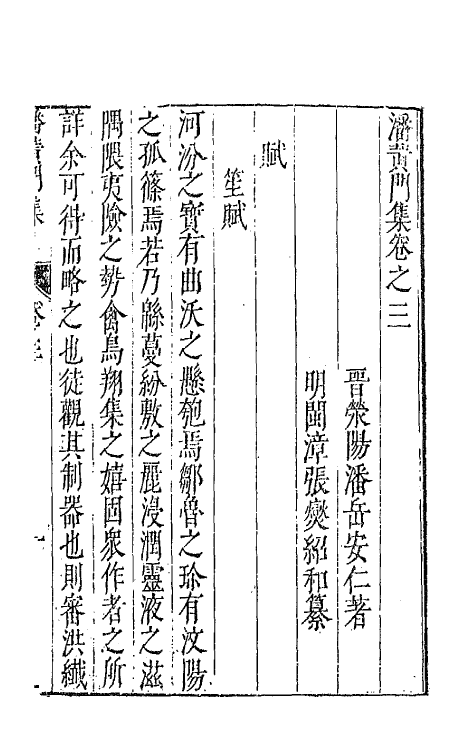 潘黃門集卷之三
晉滎陽潘岳安仁著
明閩漳張燮紹和纂
賦
笙賦
河汾之寶有曲沃之懸匏焉鄒魯之珍有汶陽
之孤篠焉若乃緜蔓紛敷之麗浸潤靈液之滋
隅隈夷險之勢禽鳥翔集之嬉固衆作者之所
詳余可得而略之也徒觀其制器也則審洪纖
潘黃門集
卷三
一